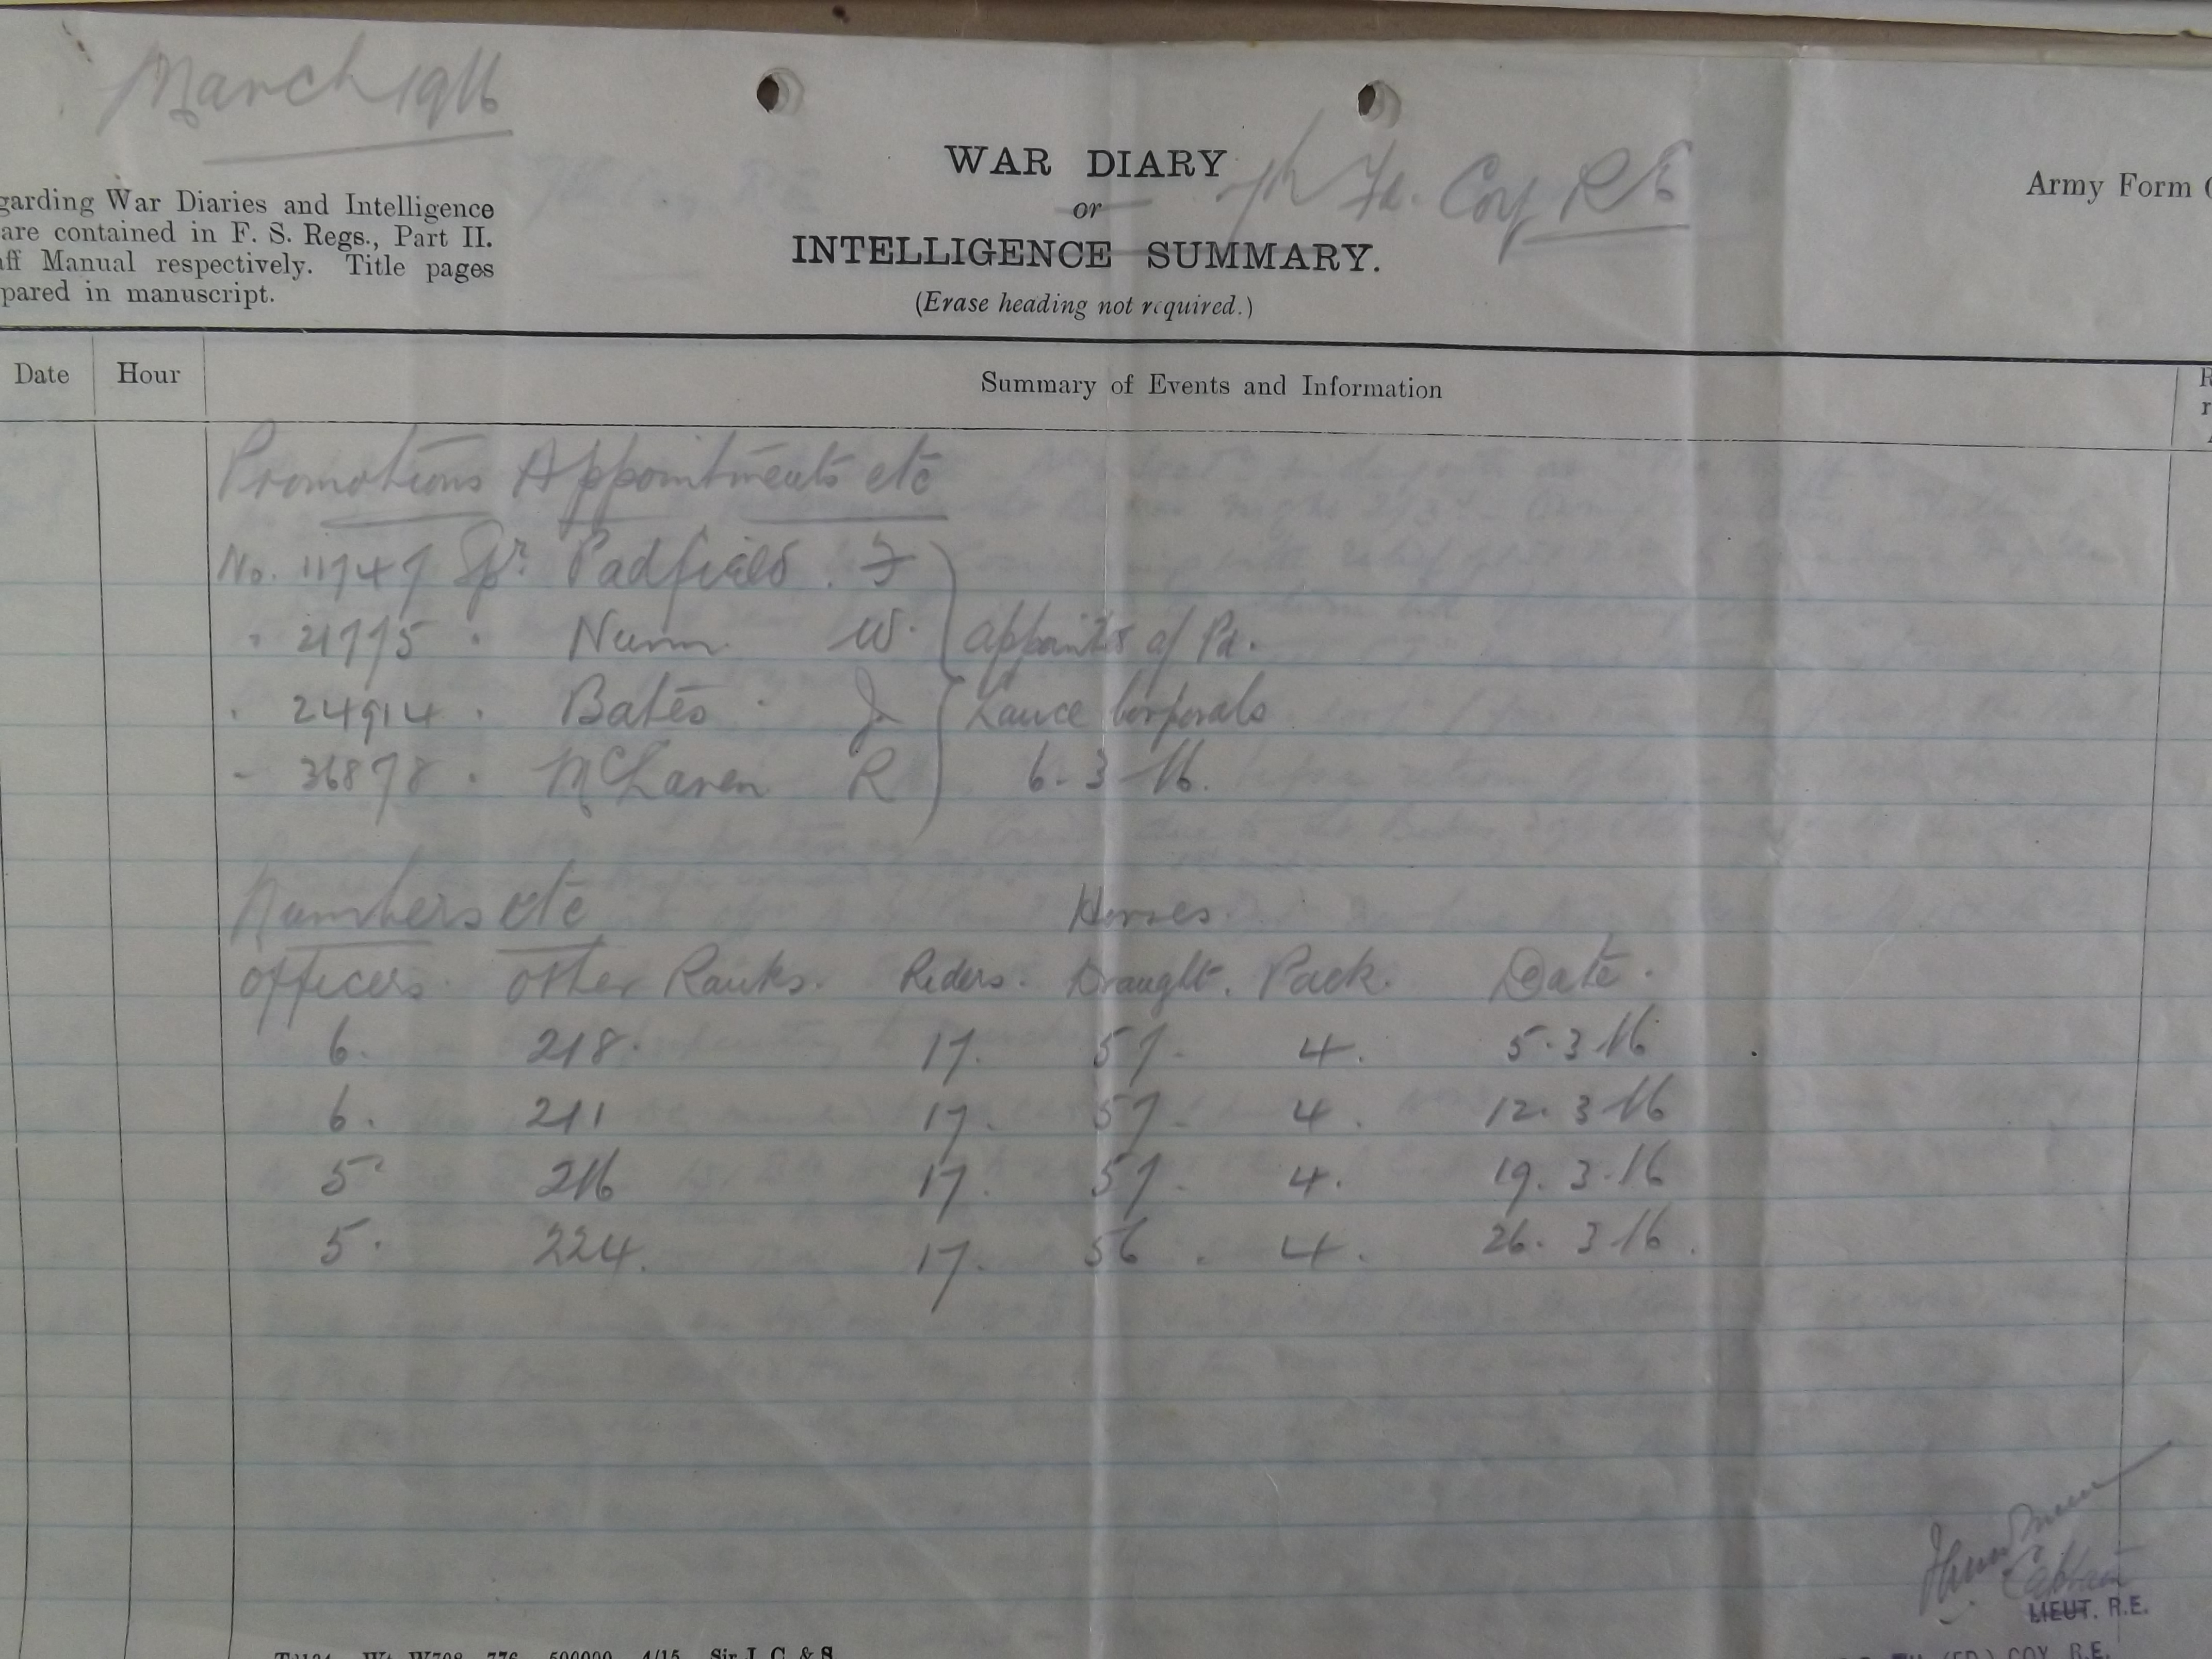 March 1916
WAR DIARY
or
INTELLIGENCE SUMMARY.
(Erase heading not required.)
7th Fd. Coy R E
Army Form
garding War Diaries and Intelligence
are contained in F. S. Regs., Part II.
aff Manual respectively. Title pages
pared in manuscript.
Date Hour Summary of Events and Information
Promotions Appointments etc
No. 11747 Spr. Padfield. F
" 21775 " Nunn. W. appointed a/ Pd.
" 24914 " Bates J Lance Corporals
" 36878 " McLaren R 6-3-16.
Numbers etc Horses.
Officers. Other Ranks. Riders. Draught. Pack. Date.
6. 218. 17. 57. 4. 5.3.16
6. 211 17. 57. 4. 12.3.16
5 216 17. 57. 4. 19.3.16
5. 224. 17. 56. 4. 26.3.16.
Captain
LIEUT. R.E.
TH (FD.) COY. R.E.
W708—776 500000 4/15 Sir J. C. & S.